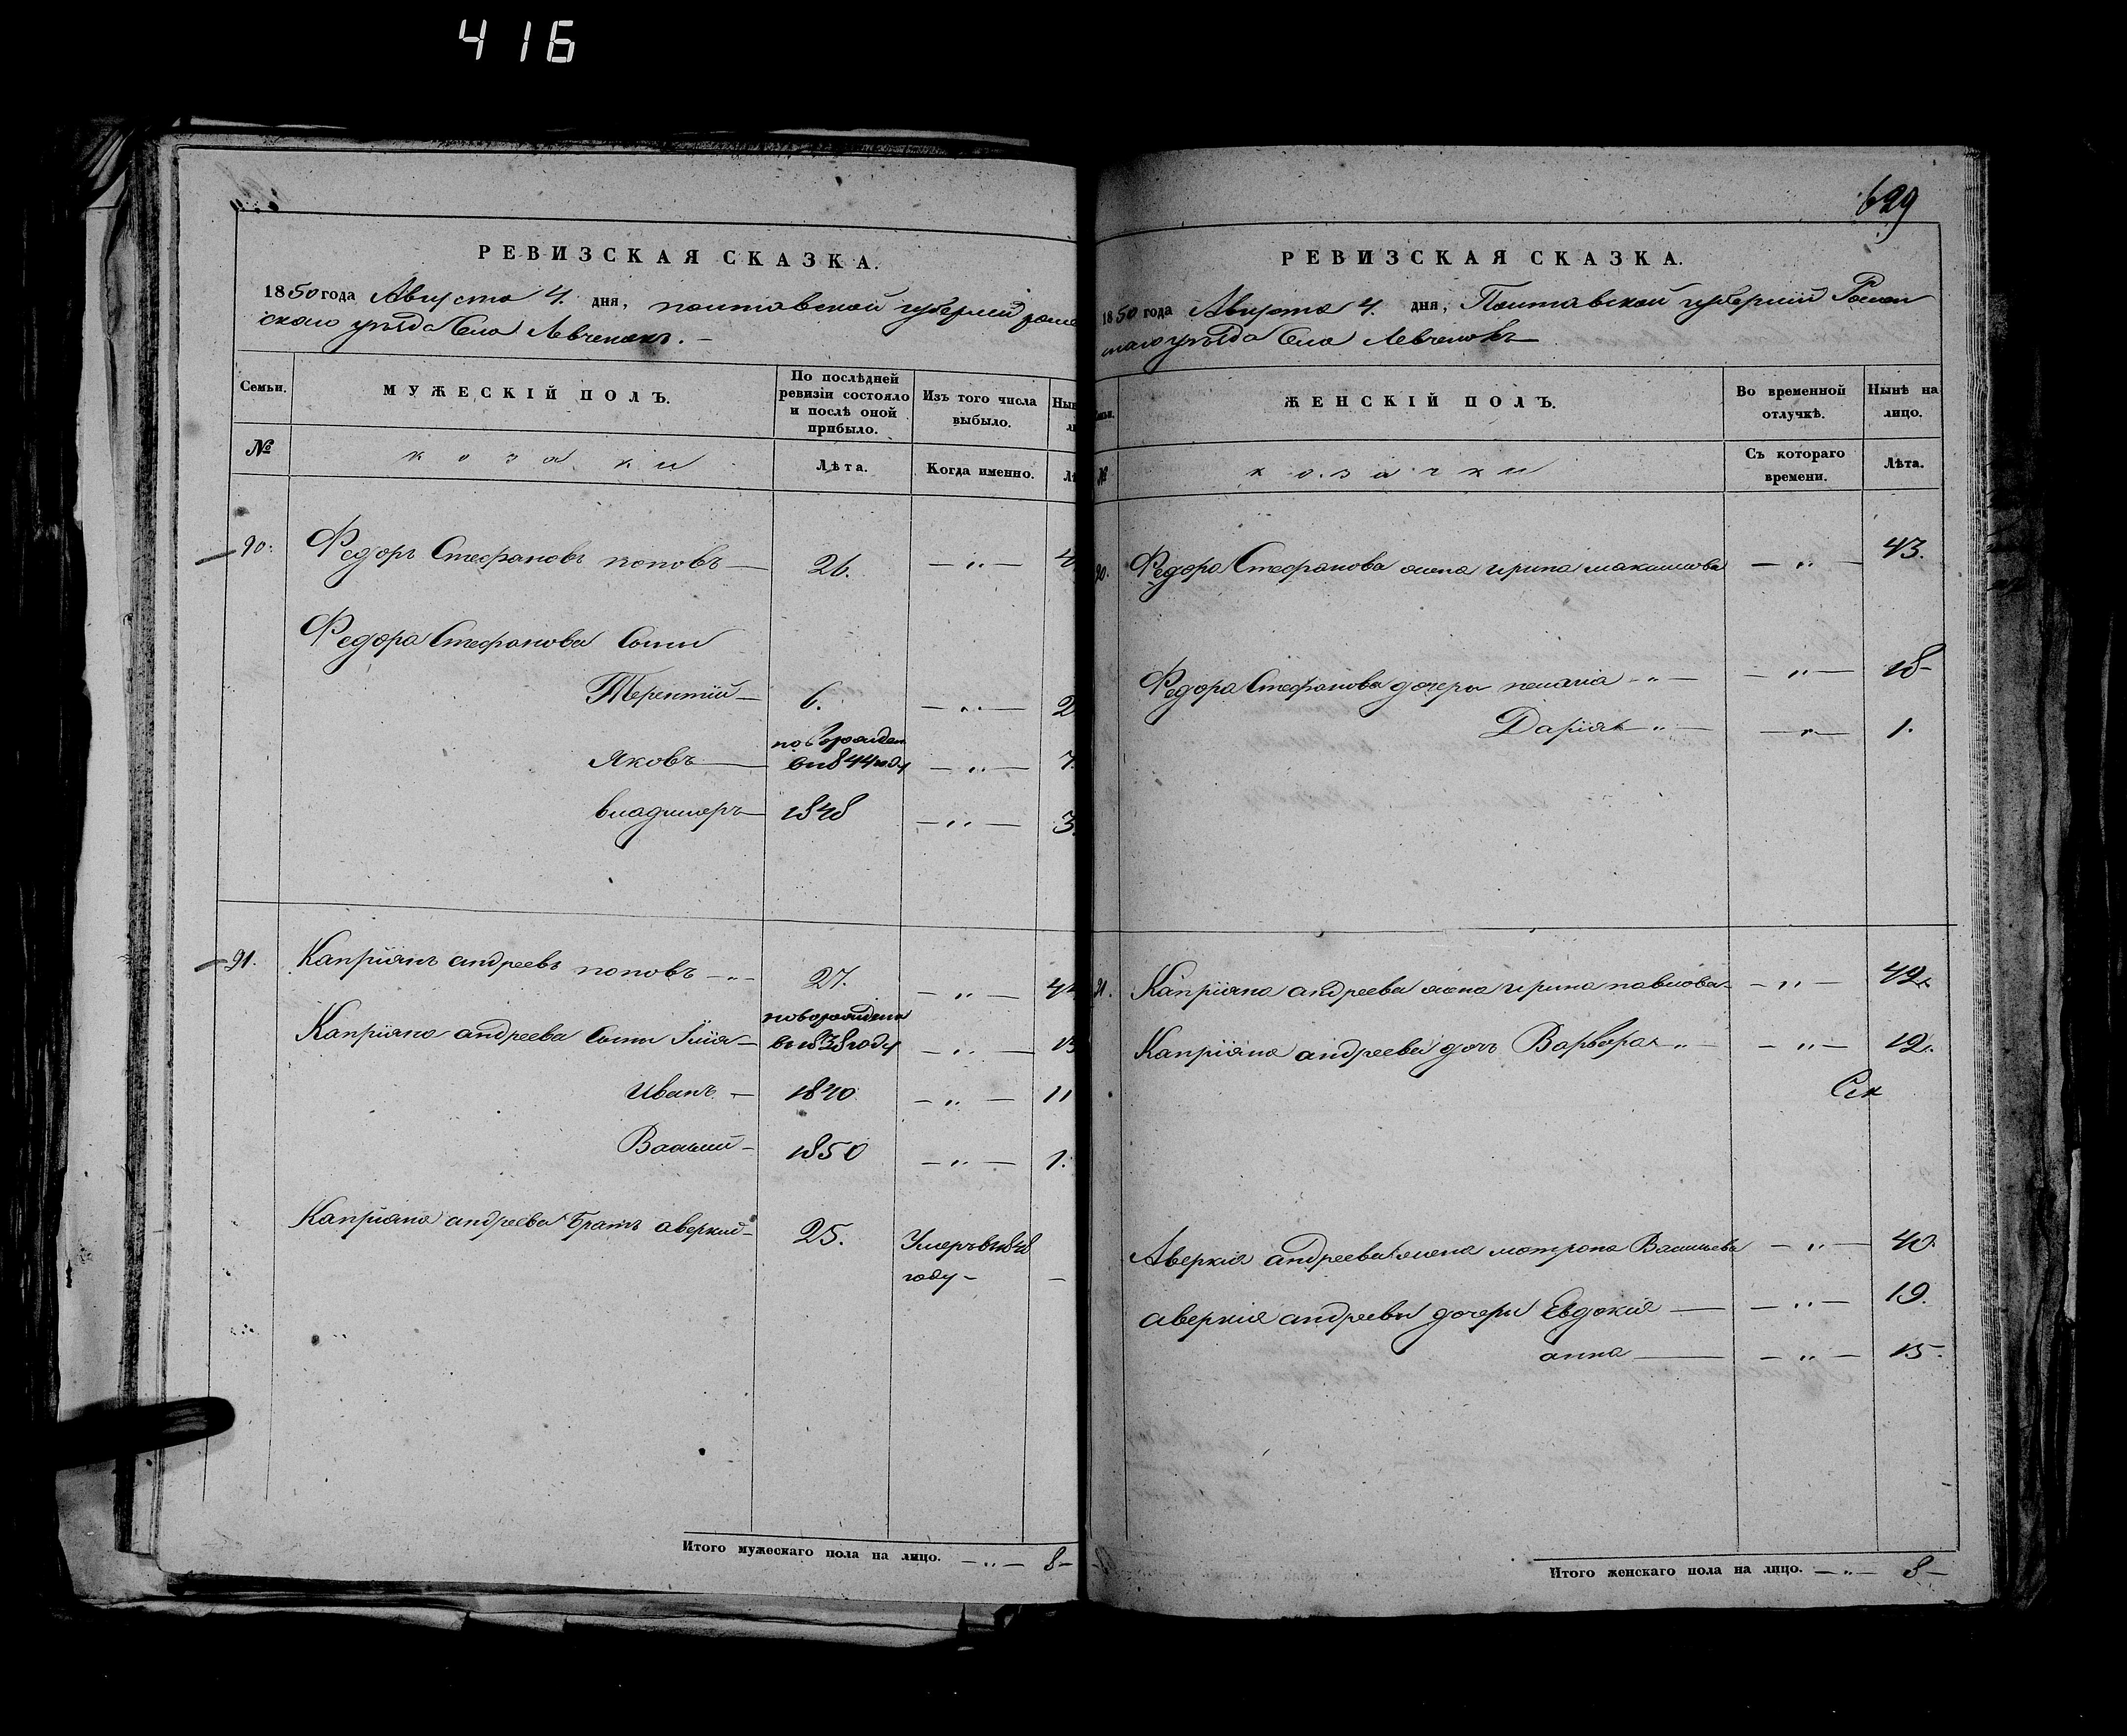 416
РЕВИЗСКАЯ СКАЗКА.
1850 года Августа 4. дня, полтавской губерний роме
ского уѣзда Села Левченокъ. —
Семьи. МУЖЕСКІЙ ПОЛЪ. По послѣдней ревизіи состояло и послѣ оной прибыло. Изъ того числа выбыло. Ны
№ козаки Лѣта. Когда именно. Лѣ
90. Федоръ Стефановъ поповъ — 26. — „ — 4
Федора Стефанова Сыны
Терентій — 6. — „ — 2
Яковъ — новорожден в 1844 году — „ — 7.
владимеръ — 1848 — „ — 3.
91. Капріянъ андреевъ поповъ — „ 27. — „ — 4
Капріяна андреева Сыны Илія — новорожденъ въ 1838 году — „ — 13
Иванъ — 1840 — „ — 11
Василий — 1850 — „ — 1.
Капріяна андреева Братъ аверкий — 25. Умеръ в 1848 году — —
Итого мужескаго пола на лицо. — „ — 8 —
629
РЕВИЗСКАЯ СКАЗКА.
1850 года Августа 4. дня, Полтавской губерніи Ромен
скаго уѣзда Села Левченокъ
Семьи. ЖЕНСКІЙ ПОЛЪ. Во временной отлучкѣ. Нынѣ на лицо.
№ козачки Съ котораго времени. Лѣта.
90. Федора Стефанова жена ирина максимова — „ — 43.
Федора Стефанова дочери пелагіа — „ — — „ — 18 —
Дарія — „ — — „ — 1.
91. Капріяна андреева жена ирина павлова — — „ — 42.
Капріяна андреева дочь Варвара — „ — — „ — 12.
Аверкія андреева жена матрона Васильева — „ — 40.
аверкія андреева дочери Евдокія — — „ — 19.
анна — — „ — 15.
Итого женскаго пола на лицо. — „ — 8 —